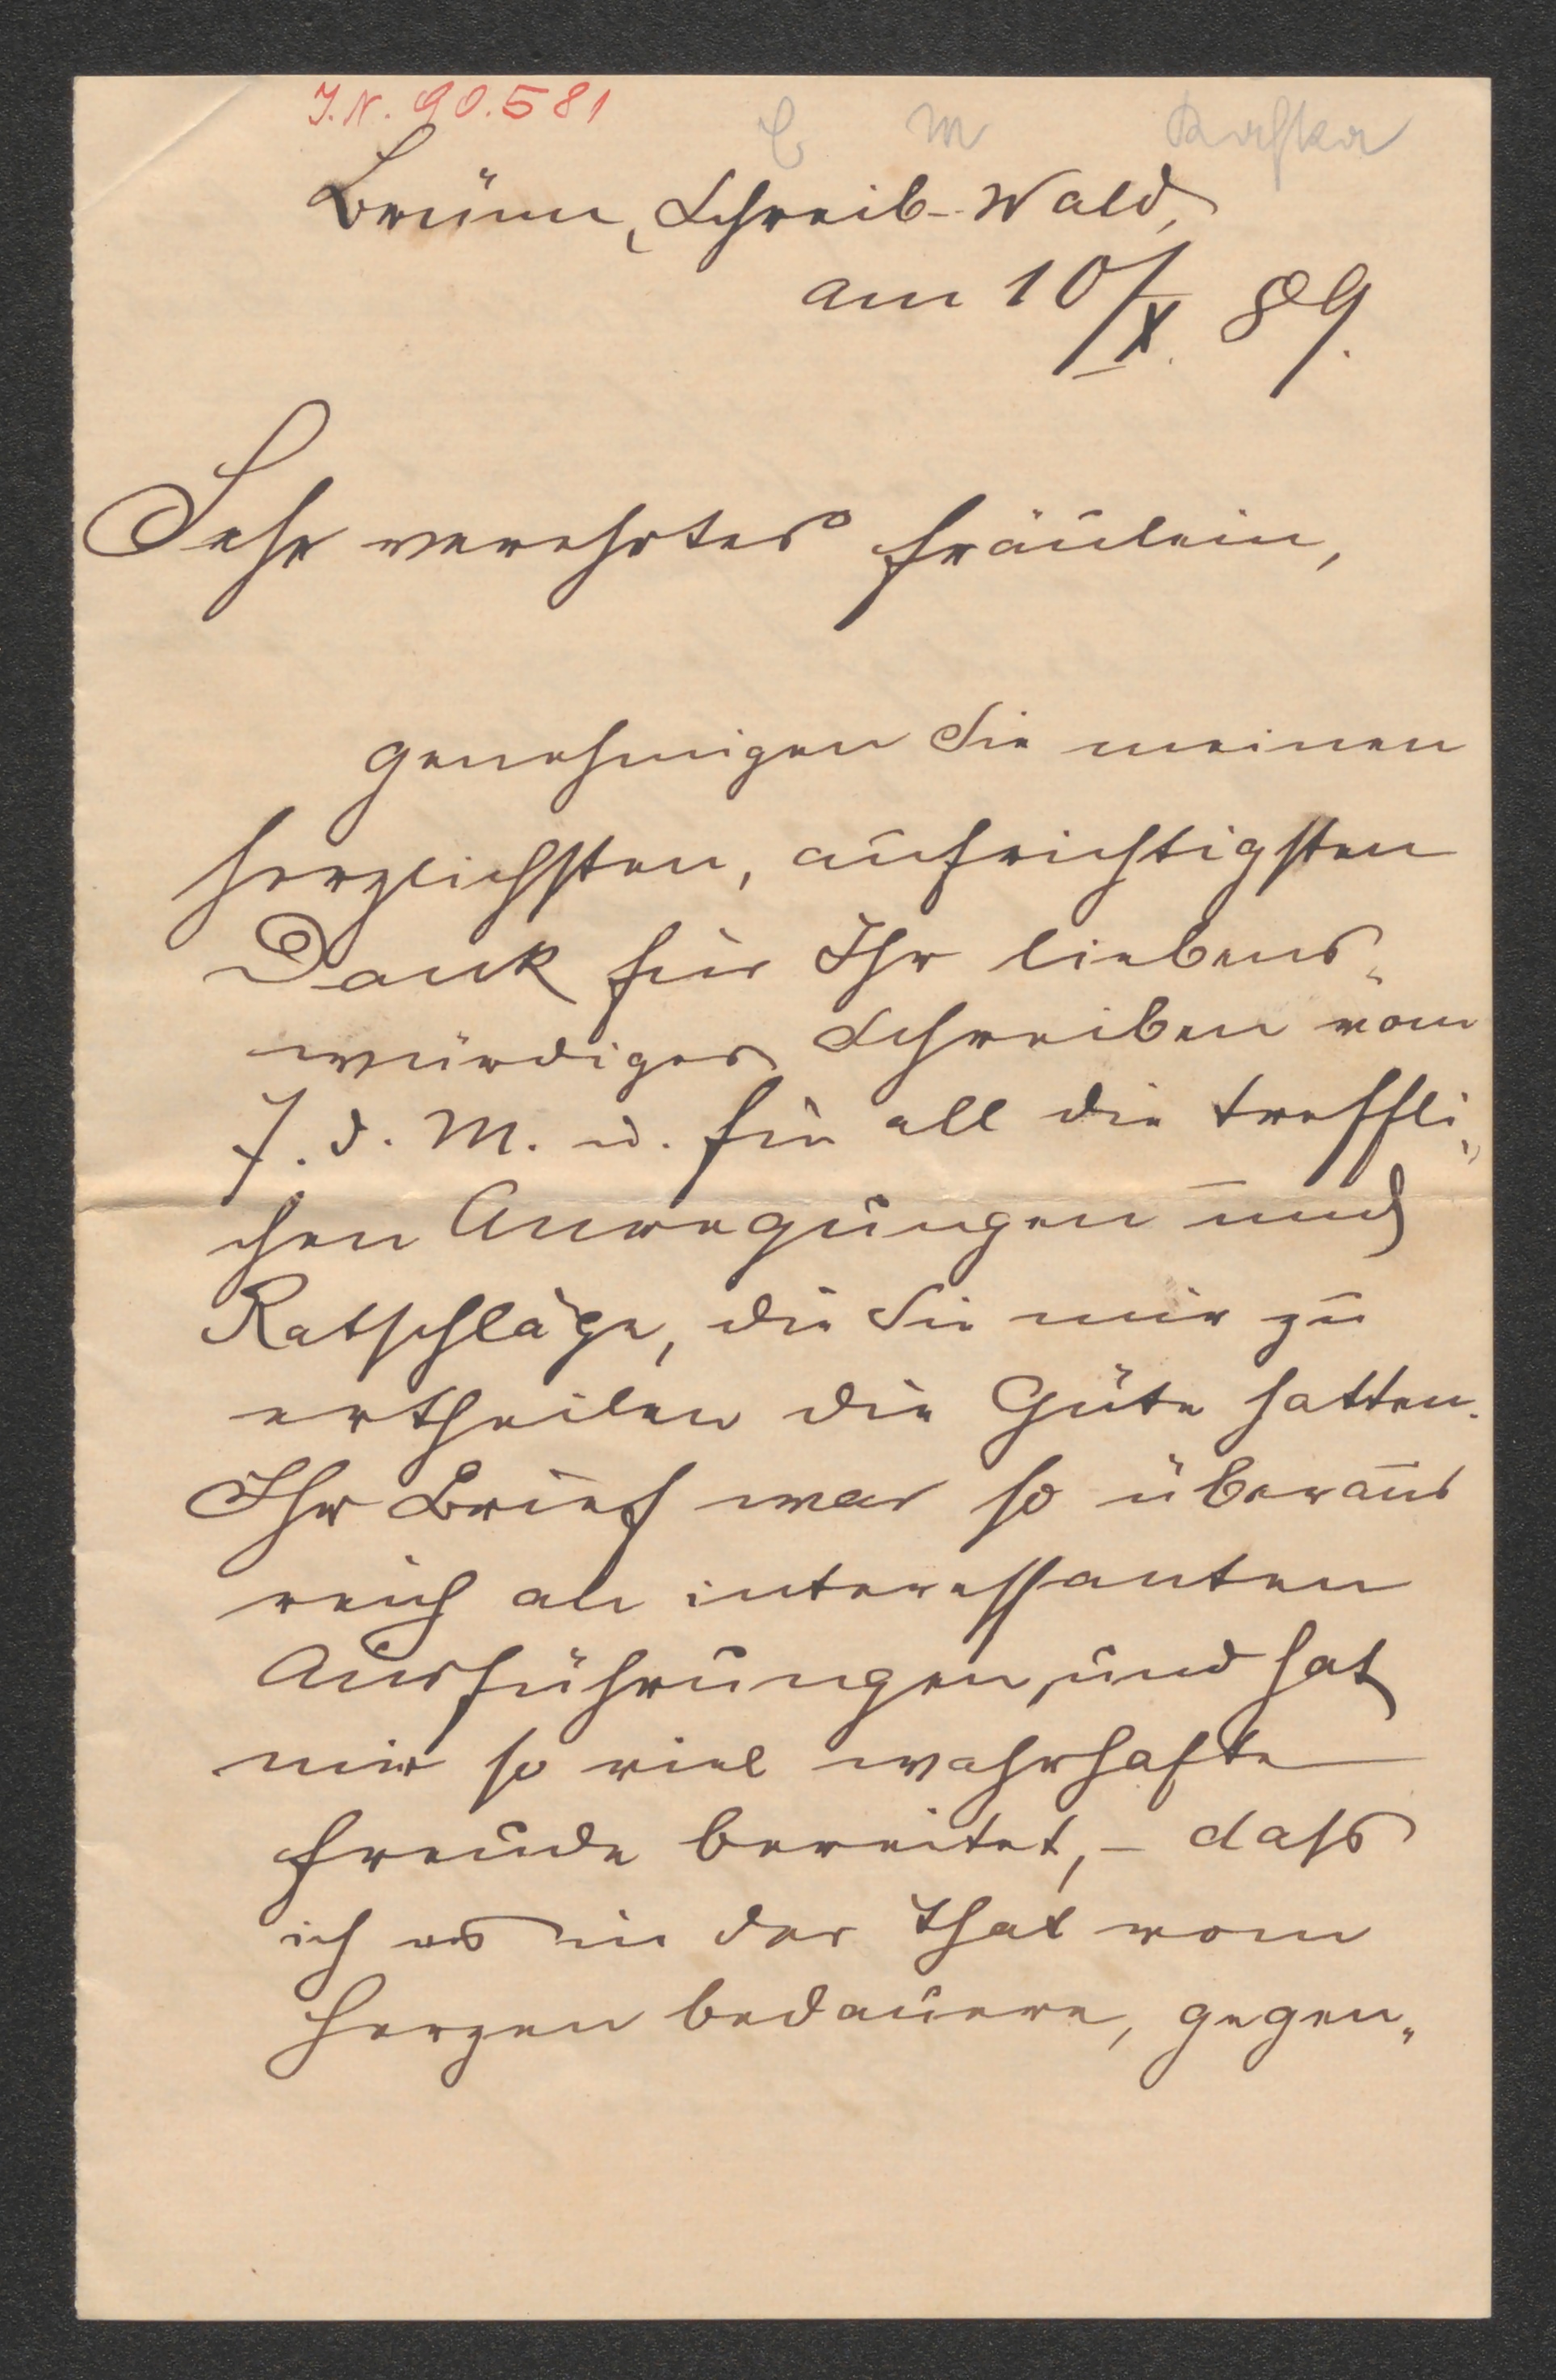 J.N. 90.581
C M Kafka
Brünn, Schreib-Wald,
am 10/X. 89.
Sehr verehrtes Fräulein,
genehmigen Sie meinen
herzlichsten, aufrichtigsten
Dank für Ihr liebens„
würdiges Schreiben vom
7. d. M. u. für all die treffli„
chen Anregungen und
Ratschläge, die Sie mir zu
ertheilen die Güte hatten.
Ihr Brief war so überaus
reich an interessanten
Ausführungen, und hat
mir so viel wahrhafte
Freude bereitet, – dass
ich es in der That vom
Herzen bedauere, gegen„